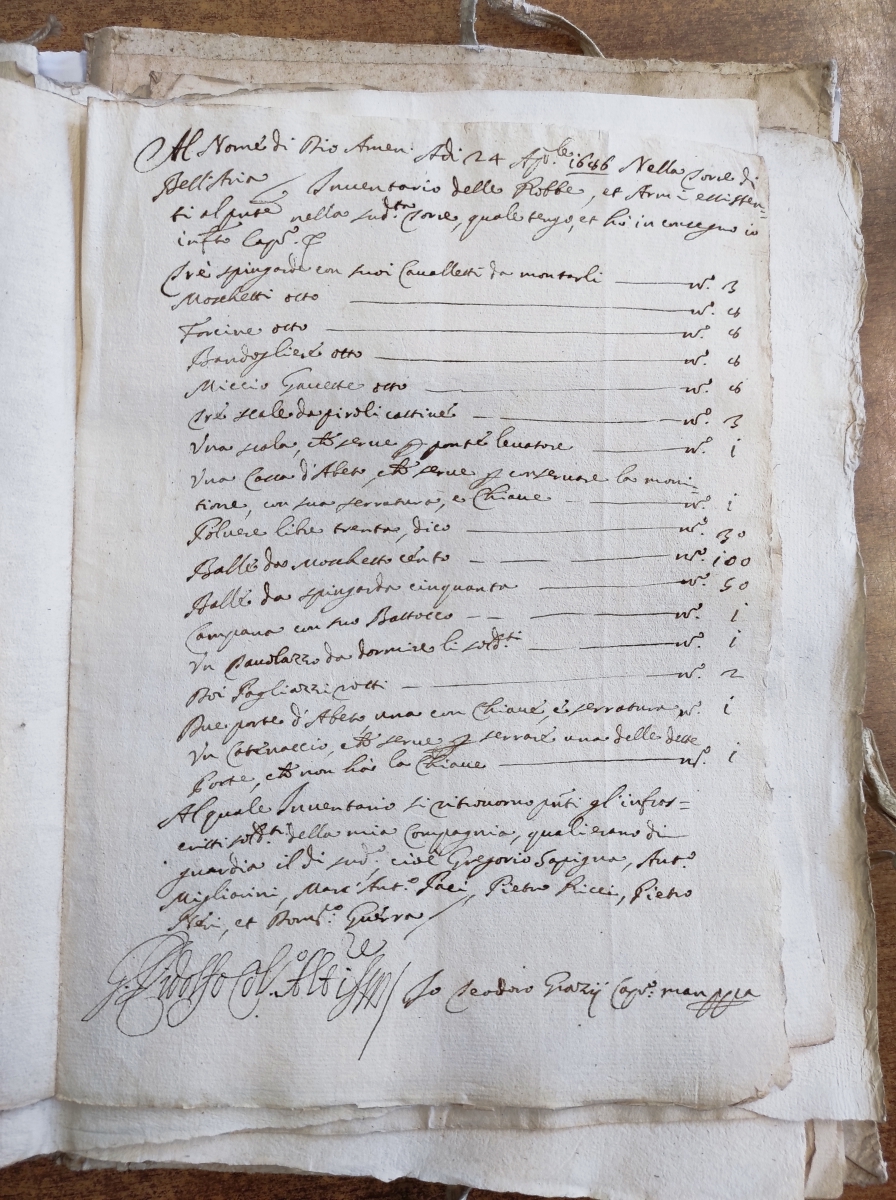 Al Nome di Dio Amen. Adi 24 Ap.le 1646 Nella Torre di
Bell'Aria / Inventario delle Robbe, et Armi essisten=
ti al pnte nella sud.ta Torre, quale tengo, et hò in consegno io
infto Cap.o
Trè spingarde con suoi Cavalletti da montarli — n.o 3
Moschetti otto — n.o 8
Forcine otto — n.o 8
Bandogliere otto — n.o 8
Miccio Gavette otto — n.o 8
Trè scale da piroli cattive — n.o 3
Una scala, che serve p ponte levatore — n.o i
Una Cassa d'Abeto, che serve p conservare la moni=
tione, con sua serratura, e Chiave — n.o i
Polvere libre trenta, dico — n.o 30
Balle da Moschetto cento — n.o 100
Balle da spingarda cinquanta — n.o 50
Campana con suo Battocco — n.o i
Un Tavolazzo da dormire li sold.ti — n.o i
Doi Pagliazzi rotti — n.o 2
Due porte d'Abeto, una con Chiave, e serratura n.o i
Un Catenaccio, che serve p serrare una delle dette
Porte, che non hà la Chiave — n.o i
Al quale Inventario si ritrovorno pnti gl'infras=
critti sold.ti della mia Compagnia, quali erano di
guardia il di sud.o, cioè Gregorio Sapigna, Ant.o
Migliarini, Marc'Ant.o Paci, Pietro Ricci, Pietro
Neri, et Dom.co Guerra /
Io Teodoro Grazij Cap.o man ppa